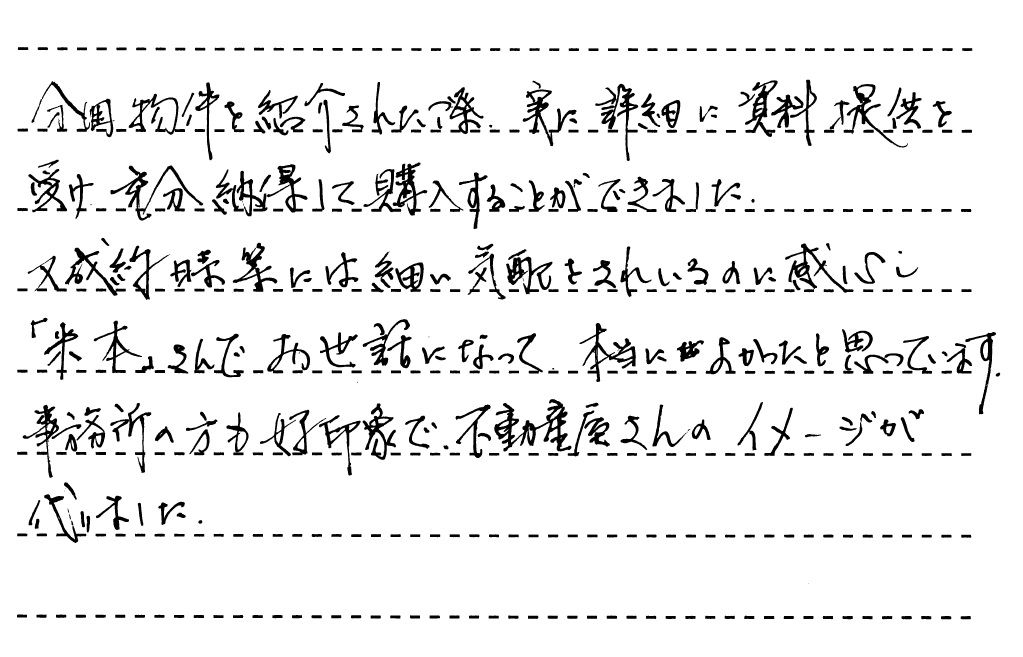 今回物件を紹介された際、実に詳細に資料提供を
受け充分納得して購入することができました。
又成約時等には細い気配をされているのに感心し
「米本」さんでお世話になって、本当によかったと思っています。
事務所の方も好印象で、不動産屋さんのイメージが
代りました。